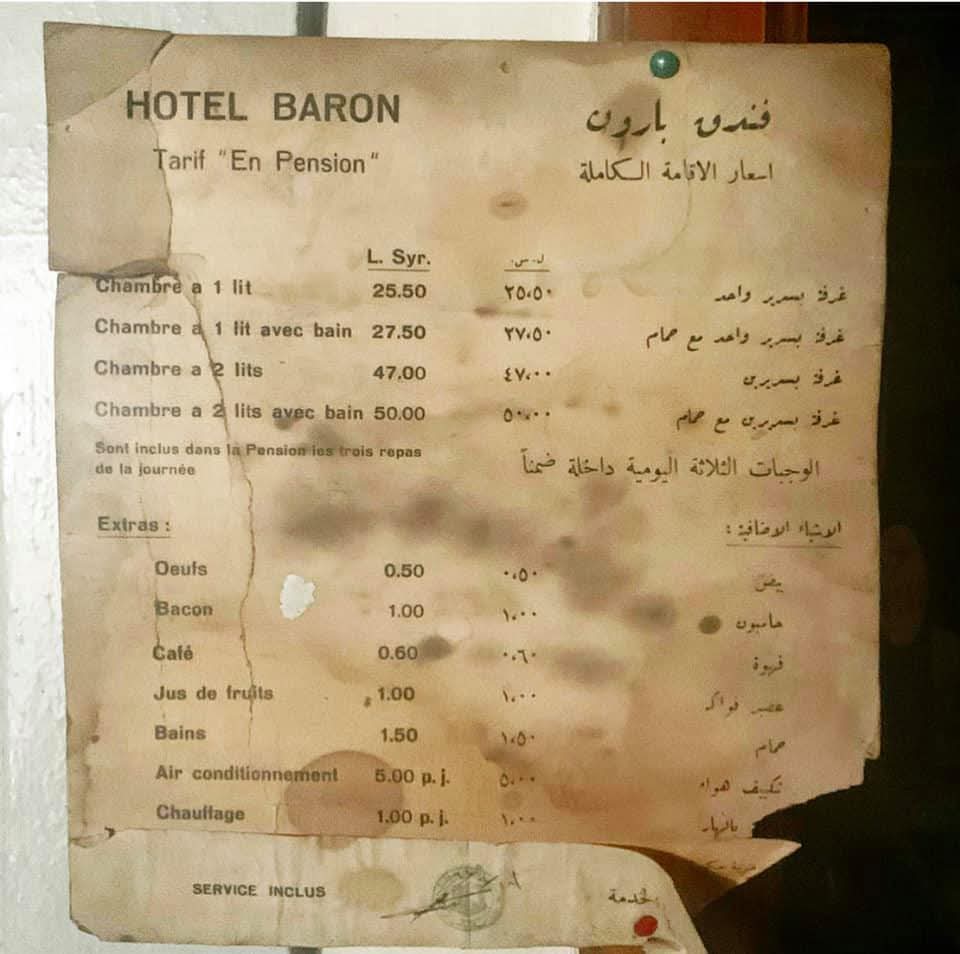 HOTEL BARON فندق بارون
Tarif "En Pension" اسعار الاقامة الكاملة
L. Syr. ل.س.
Chambre a 1 lit 25.50 ٢٥،٥٠ غرفة بسرير واحد
Chambre a 1 lit avec bain 27.50 ٢٧،٥٠ غرفة بسرير واحد مع حمام
Chambre a 2 lits 47.00 ٤٧،٠٠ غرفة بسريرين
Chambre a 2 lits avec bain 50.00 ٥٠،٠٠ غرفة بسريرين مع حمام
Sont inclus dans la Pension les trois repas
de la journée
الوجبات الثلاثة اليومية داخلة ضمناً
Extras : الاشياء الاضافية :
Oeufs 0.50 ٠،٥٠ بيض
Bacon 1.00 ١،٠٠ جامبون
Café 0.60 ٠،٦٠ قهوة
Jus de fruits 1.00 ١،٠٠ عصير فواكه
Bains 1.50 ١،٥٠ حمام
Air conditionnement 5.00 p. j. ٥،٠٠ تكييف هواء
Chauffage 1.00 p. j. ١،٠٠ بالنهار
SERVICE INCLUS الخدمة